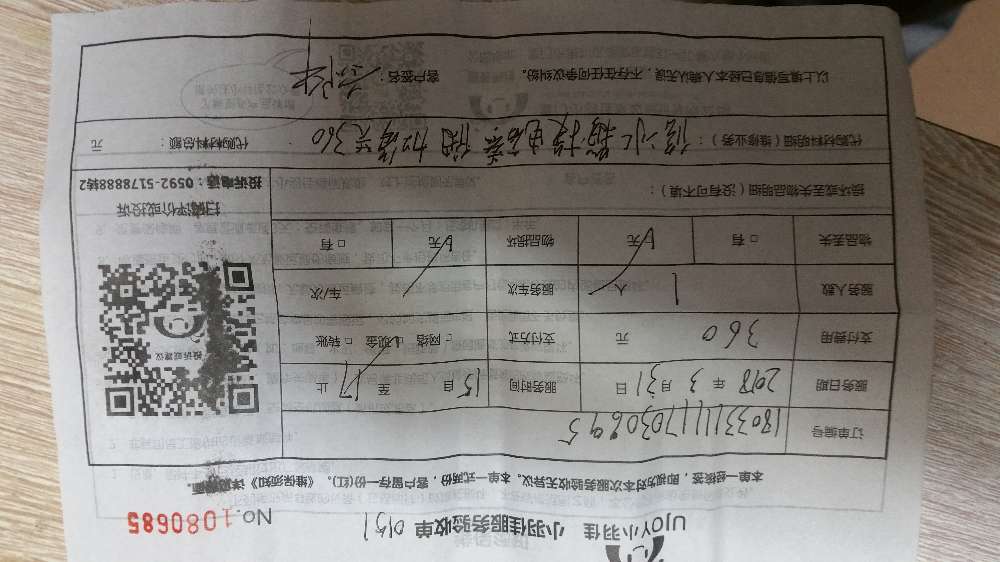 UJOY小羽佳 小羽佳服务验收单 0151
No.1080685
本单一经核签,即视为对本次服务验收无异议。本单一式两份,客户留存一份(红)。《维保须知》详见背面
订单编号 1803311117030695
服务日期 2018年3月31日 服务时间 15自 至17止
支付费用 360元 支付方式 □网络 □现金 □转账
服务人数 1人 服务车次 车/次
物品丢失 □有 □无 物品损坏 □无 □有
损坏或丢失物品明细(没有可不填):
代购材料明细(维修业务):
代购材料总额: 元
以上填写信息已经本人确认无误,不存在任何争议纠纷。 客户签名:
投诉或建议
扫描评价或投诉
投诉电话:0592-5178888转2